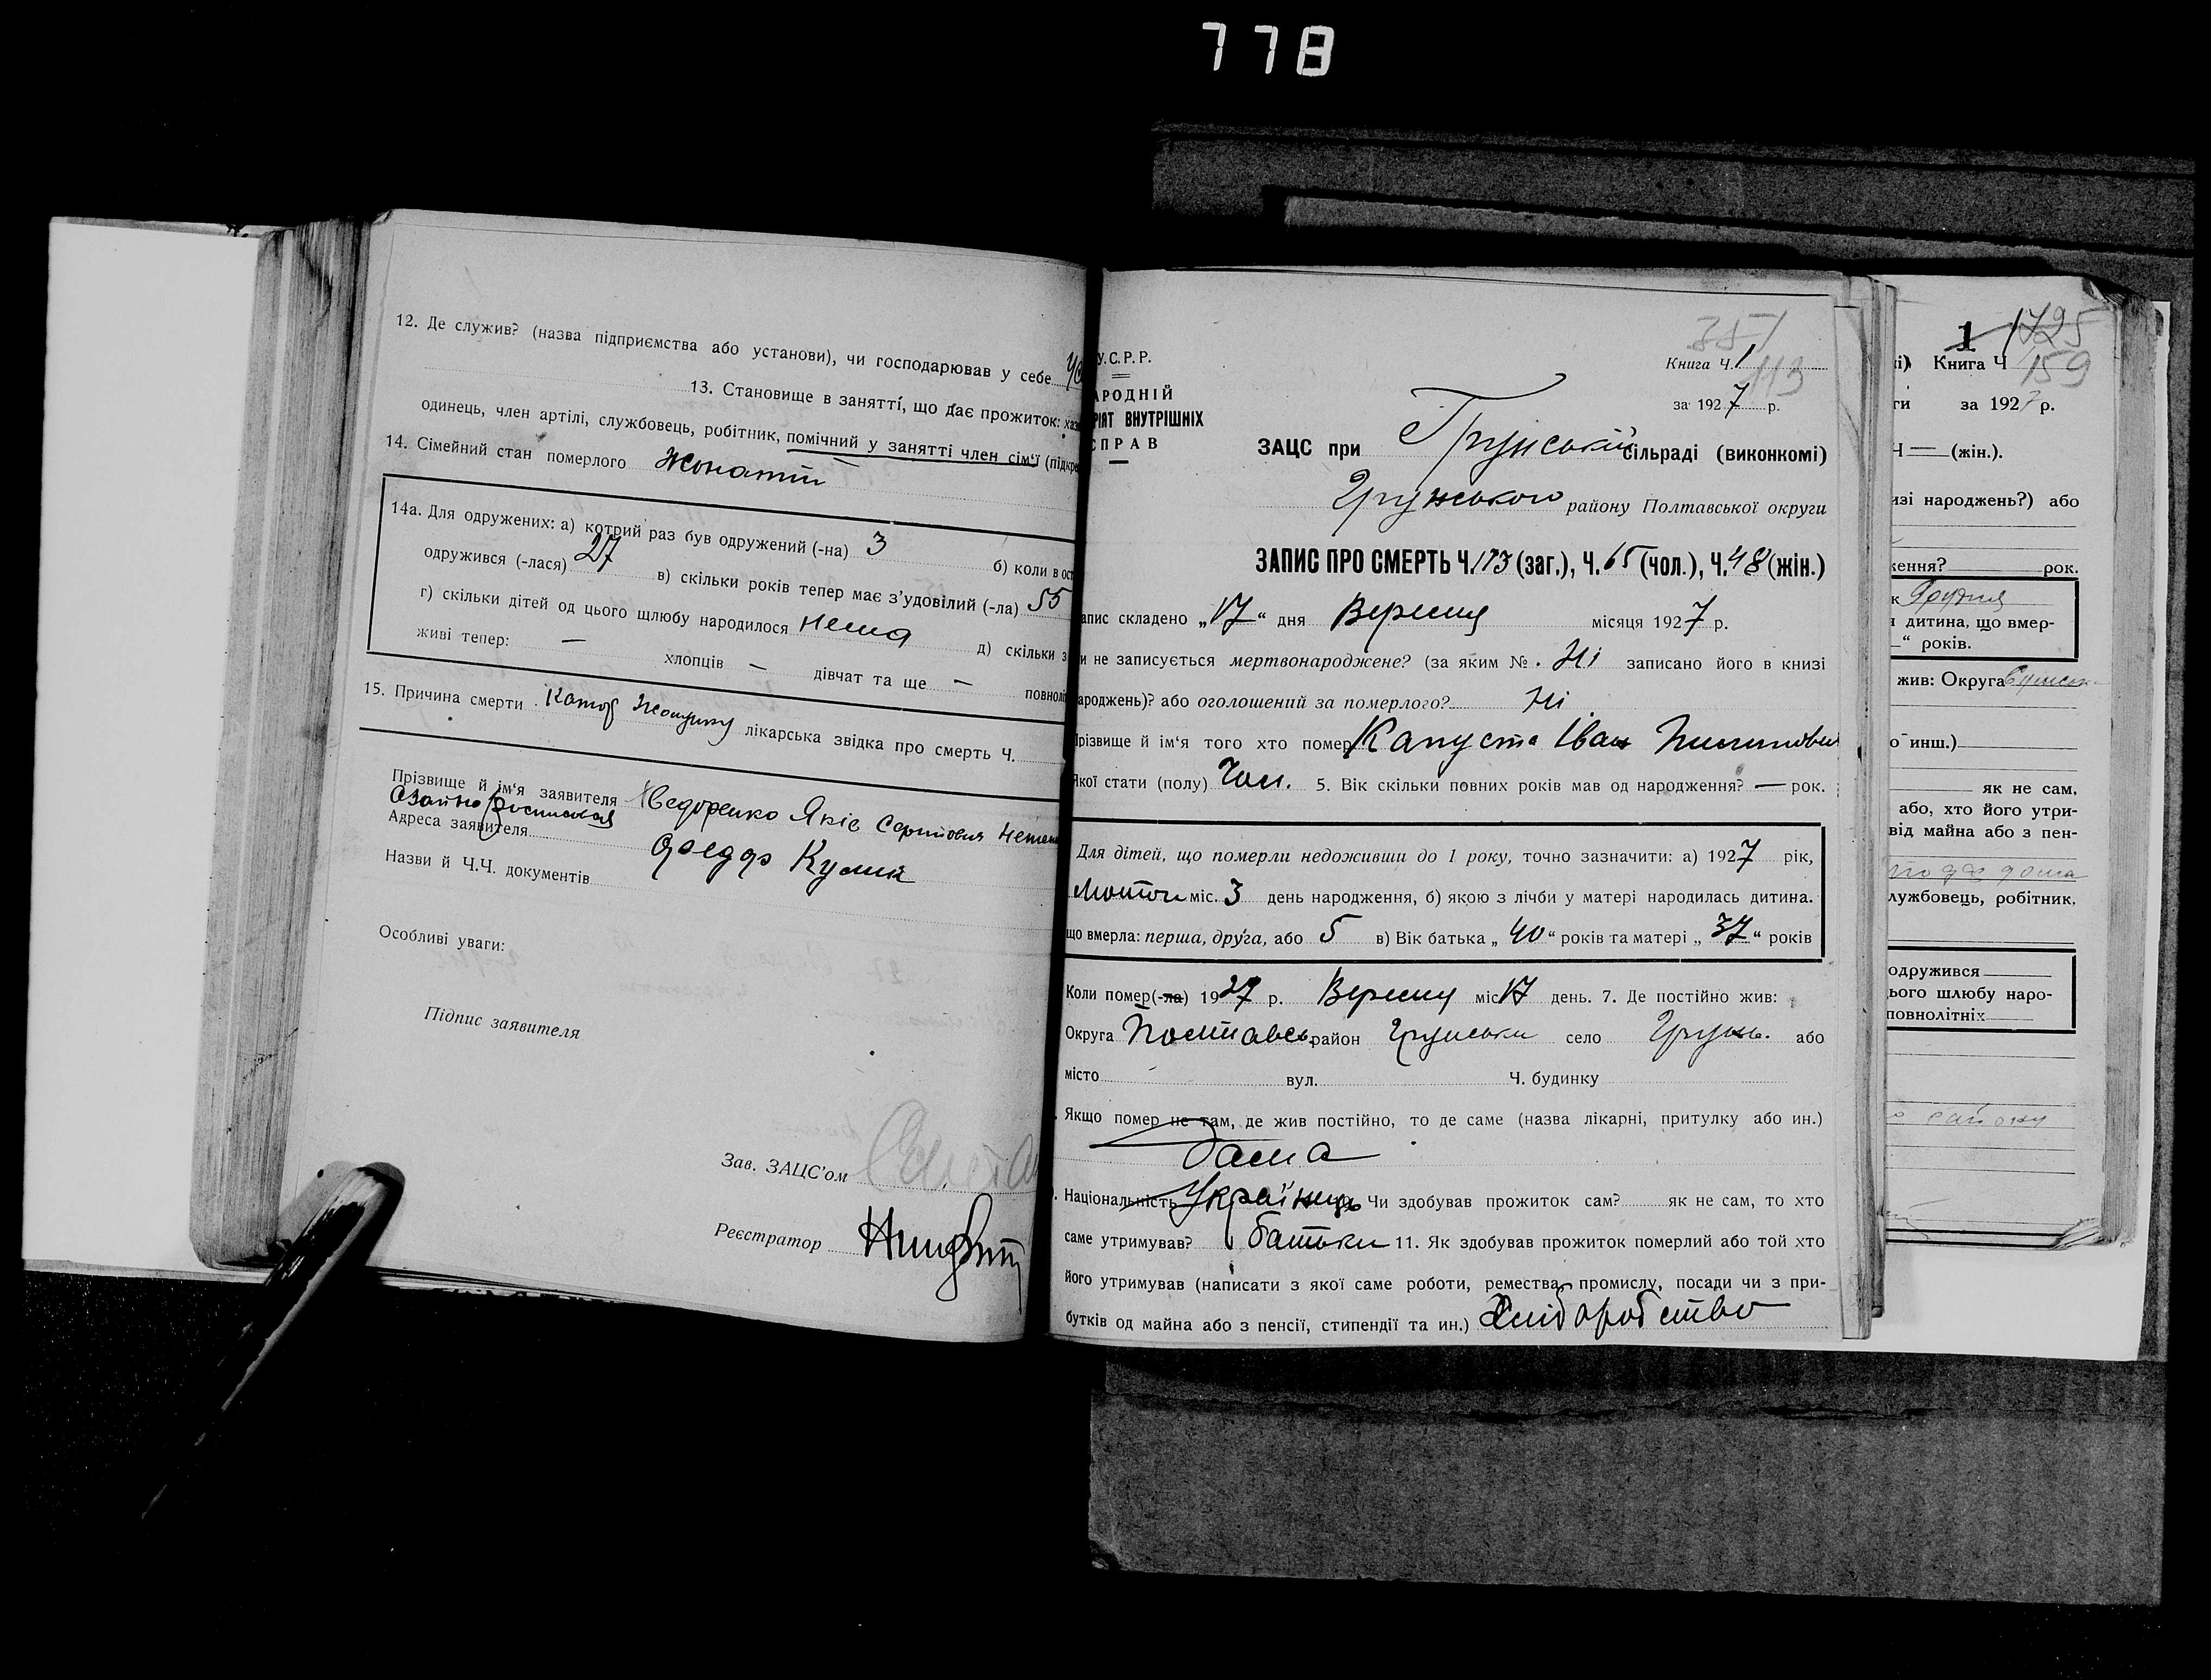 778
12. Де служив? (назва підприємства або установи), чи господарював у себе
13. Становище в занятті, що дає прожиток:
одинець, член артілі, службовець, робітник, помічний у занятті член сім'ї
14. Сімейний стан померлого Жонатий
14а. Для одружених: а) котрий раз був одружений (-на) 3 б) коли в
одружився (-лася) 27 в) скільки років тепер має з'удовілий (-ла) 55
г) скільки дітей од цього шлюбу народилося нема д) скільки з
живі тепер: — хлопців — дівчат та ще —
15. Причина смерти Катар лікарська звідка про смерть Ч.
Прізвище й ім'я заявителя Яків
Адреса заявителя
Назви й Ч.Ч. документів Кулик
Особливі уваги:
Підпис заявителя
Зав. ЗАЦС'ом
Реєстратор
У.С.Р.Р.
АРОДНІЙ
РІЯТ ВНУТРІШНІХ
СПРАВ
351
Книга Ч. 1
113
за 1927 р.
ЗАЦС при Грунській сільраді (виконкомі)
Грунського району Полтавської округи
ЗАПИС ПРО СМЕРТЬ Ч. 113 (заг.), Ч. 65 (чол.), Ч. 48 (жін.)
апис складено „17“ дня Вересня місяця 1927 р.
и не записується мертвонароджене? (за яким № Ні записано його в книзі
ароджень)? або оголошений за померлого? Ні
різвище й ім'я того хто помер Капуста Іван Пилипович
Якої стати (полу) Чол. 5. Вік скільки повних років мав од народження? — рок.
Для дітей, що померли недоживши до 1 року, точно зазначити: а) 1927 рік,
міс. 3 день народження, б) якою з лічби у матері народилась дитина.
що вмерла: перша, друга, або 5 в) Вік батька „40“ років та матері „37“ років
Коли помер(-ла) 1927 р. Вересня міс 17 день. 7. Де постійно жив:
Округа Полтавсь. район Грунськи село Грунь. або
місто вул. Ч. будинку
Якщо помер не там, де жив постійно, то де саме (назва лікарні, притулку або ин.)
Дома
Національність Українець Чи здобував прожиток сам? як не сам, то хто
саме утримував? батьки 11. Як здобував прожиток померлий або той хто
його утримував (написати з якої саме роботи, ремества, промислу, посади чи з при-
бутків од майна або з пенсії, стипендії та ин.) Хліборобство
1 1725
і) Книга Ч 159
ги за 1927 р.
Ч — (жін.).
изі народжень?) або
ження? рок.
к Грудня
дитина, що вмер-
—“ років.
жив: Округа Сумськ
о инш.)
як не сам,
або, хто його утри-
від майна або з пен-
лужбовець, робітник,
одружився
ього шлюбу наро-
повнолітніх